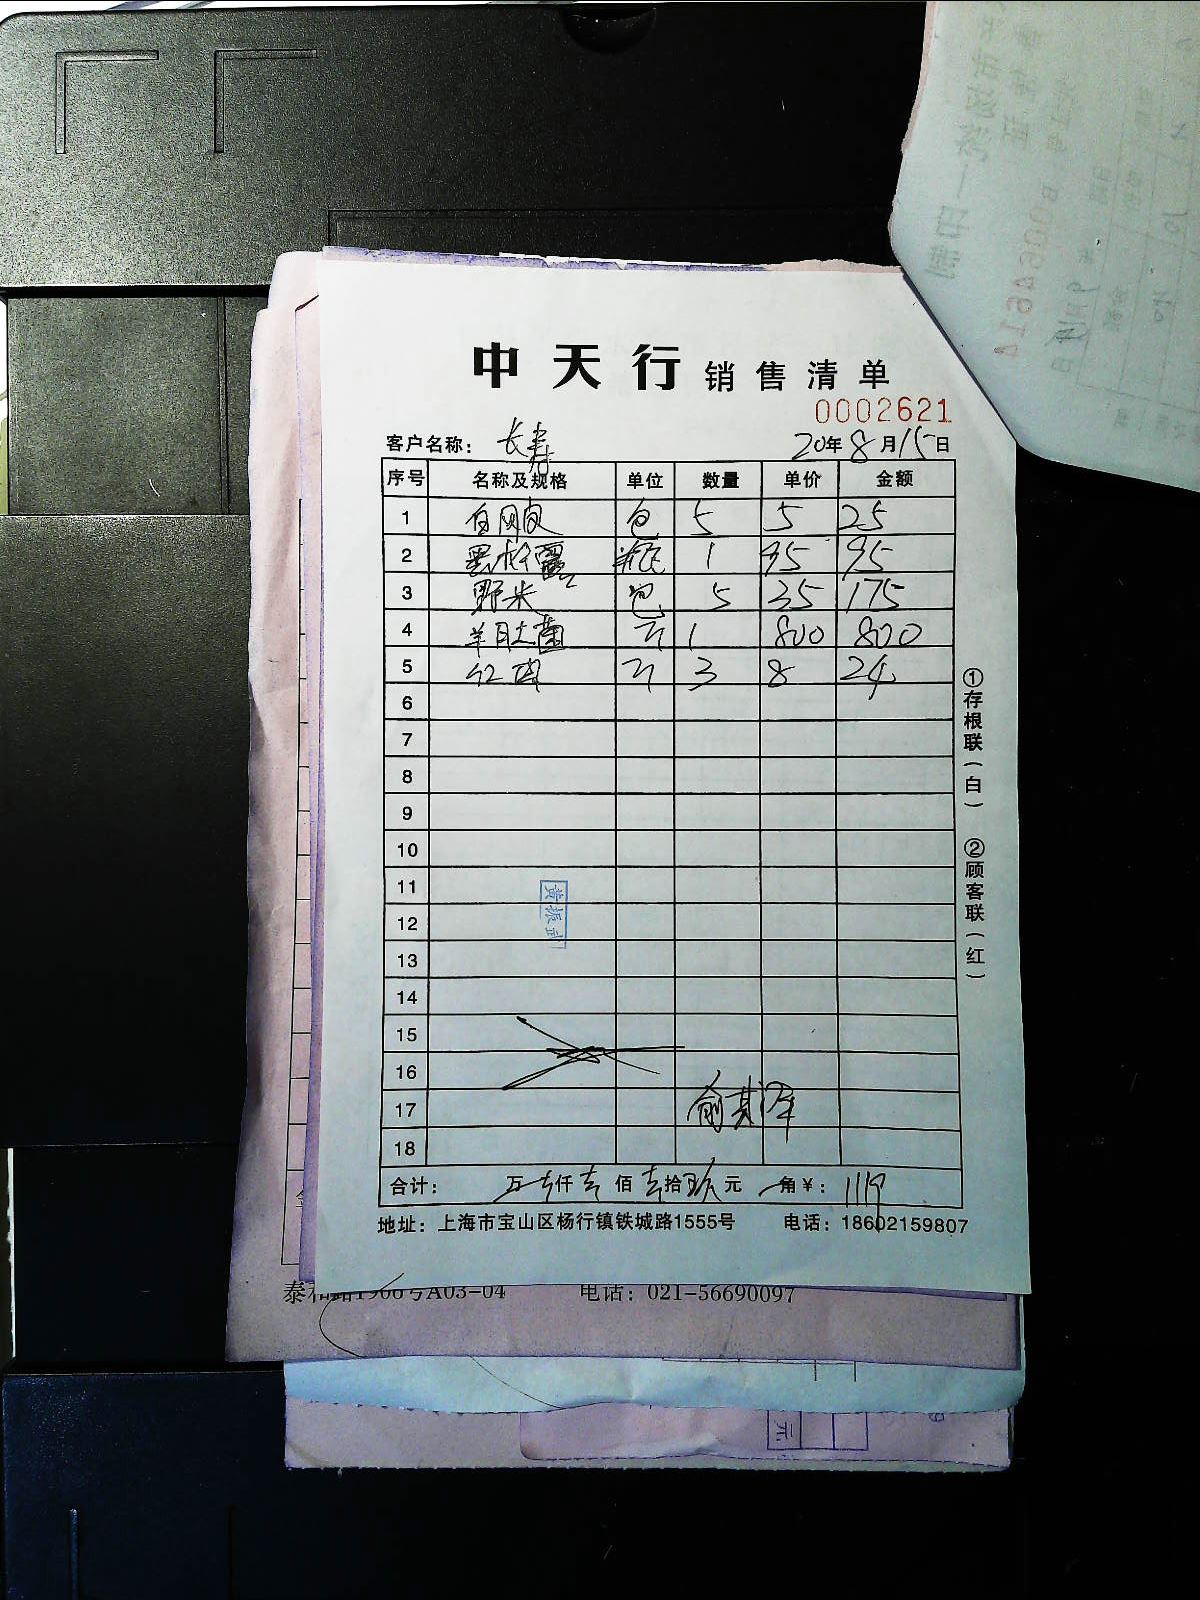 中天行 销售清单
0002621
客户名称： 长寿 20年8月15日
序号 名称及规格 单位 数量 单价 金额
1 白网皮 包 5 5 25
2 瓶 1 95 95
3 野米 包 5 35 175
4 羊肚菌 斤 1 800 800
5 斤 3 8 24
6
7
8
9
10
11
12
13
14
15
16
17 俞其泽
18
合计： 万 壹仟 壹佰 壹拾 玖元 角￥： 1119
地址：上海市宝山区杨行镇铁城路1555号 电话：18602159807
①存根联（白） ②顾客联（红）
黄振武
泰和路1966号A03-04 电话：021-56690097
元